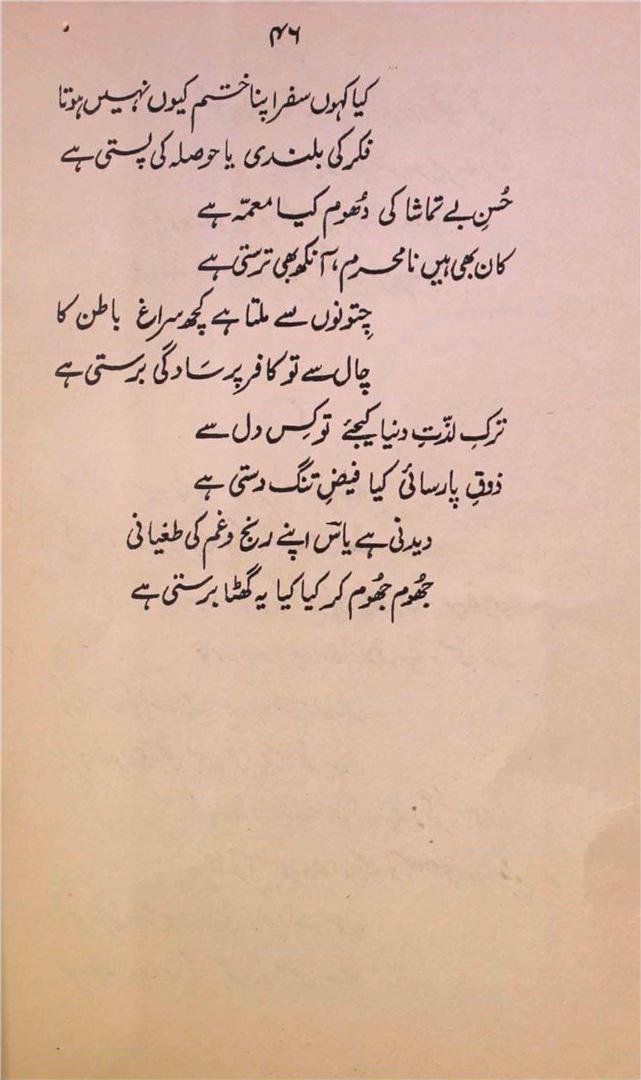 ۴۶
کیا کہوں سفر اپنا ختم کیوں نہیں ہوتا
فکر کی بلندی یا حوصلہ کی پستی ہے
حُسنِ بے تماشا کی دُھوم کیا معمّہ ہے
کان بھی ہیں نامحرم، آنکھ بھی ترستی ہے
چِتونوں سے ملتا ہے کچھ سراغ باطن کا
چال سے تو کافر پر سَادگی برستی ہے
ترکِ لذّتِ دنیا کیجئے تو کِس دل سے
ذوقِ پارسائی کیا فیضِ تنگ دستی ہے
دیدنی ہے یاسؔ اپنے رنج و غم کی طغیانی
جُھوم جُھوم کر کیا کیا یہ گھٹا برستی ہے